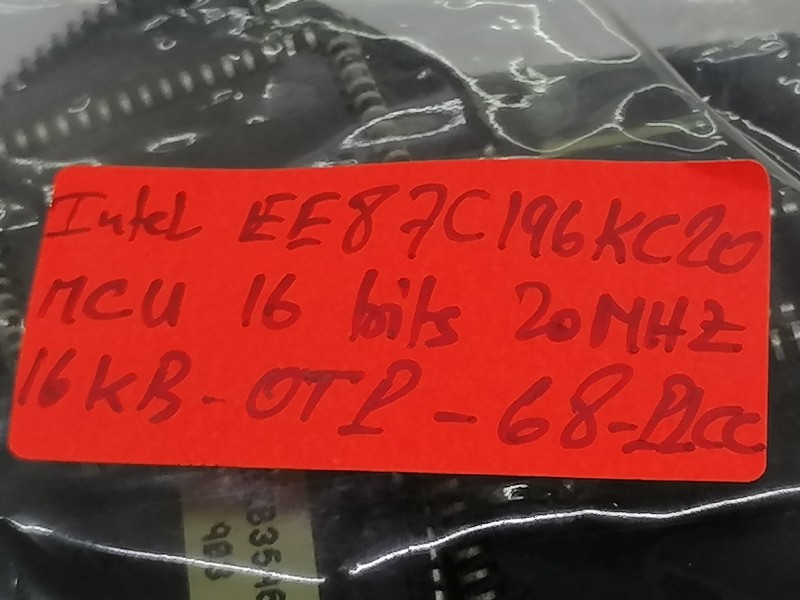 Intel EE87C196KC20
MCU 16 bits 20MHZ
16KB-OTP-68-PLCC